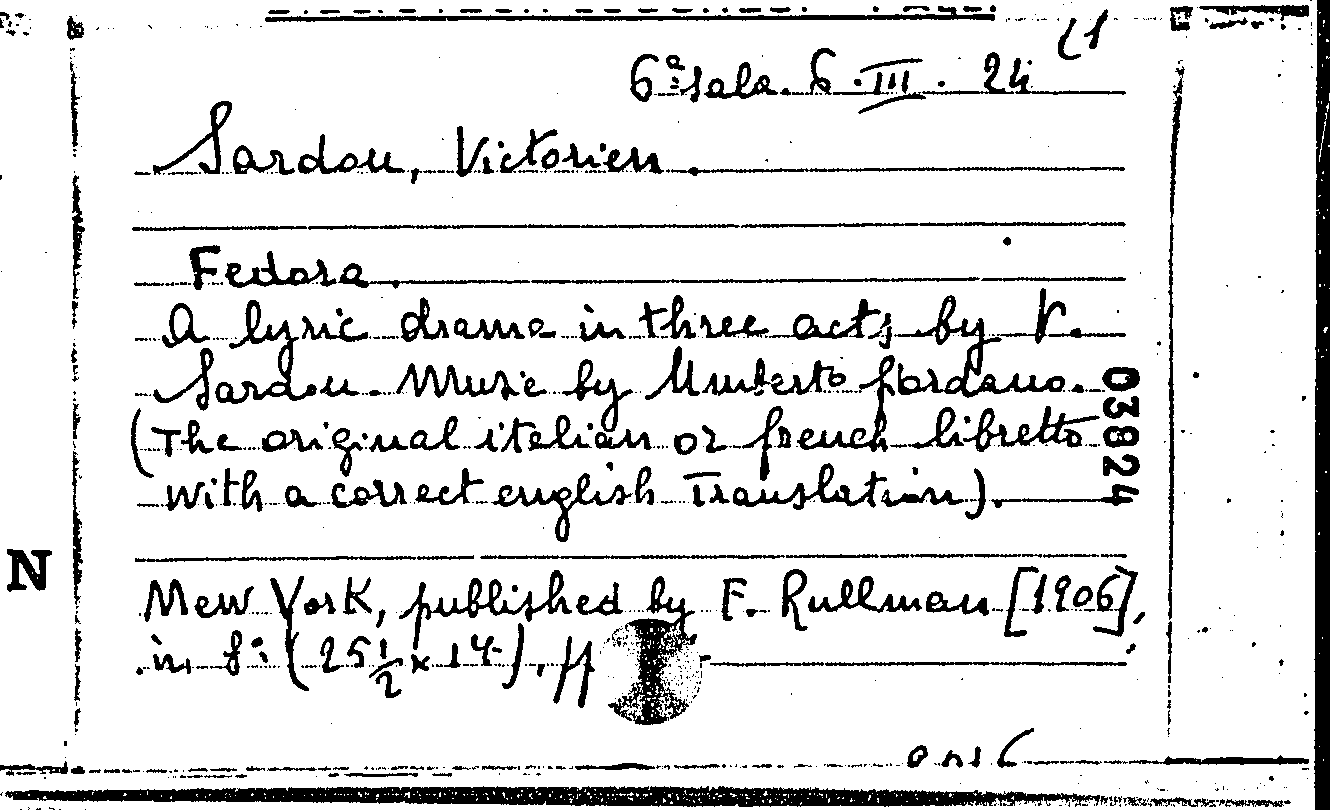 (1
6ª sala. 6. III. 24
Sardou, Victorien.
Fedora.
A lyric drama in three acts by V.
Sardou. Music by Umberto Giordano.
03824
(The original italian or french libretto
with a correct english translation).
N
New York, published by F. Rullman [1906],
in 8º (25½ x 17), pp